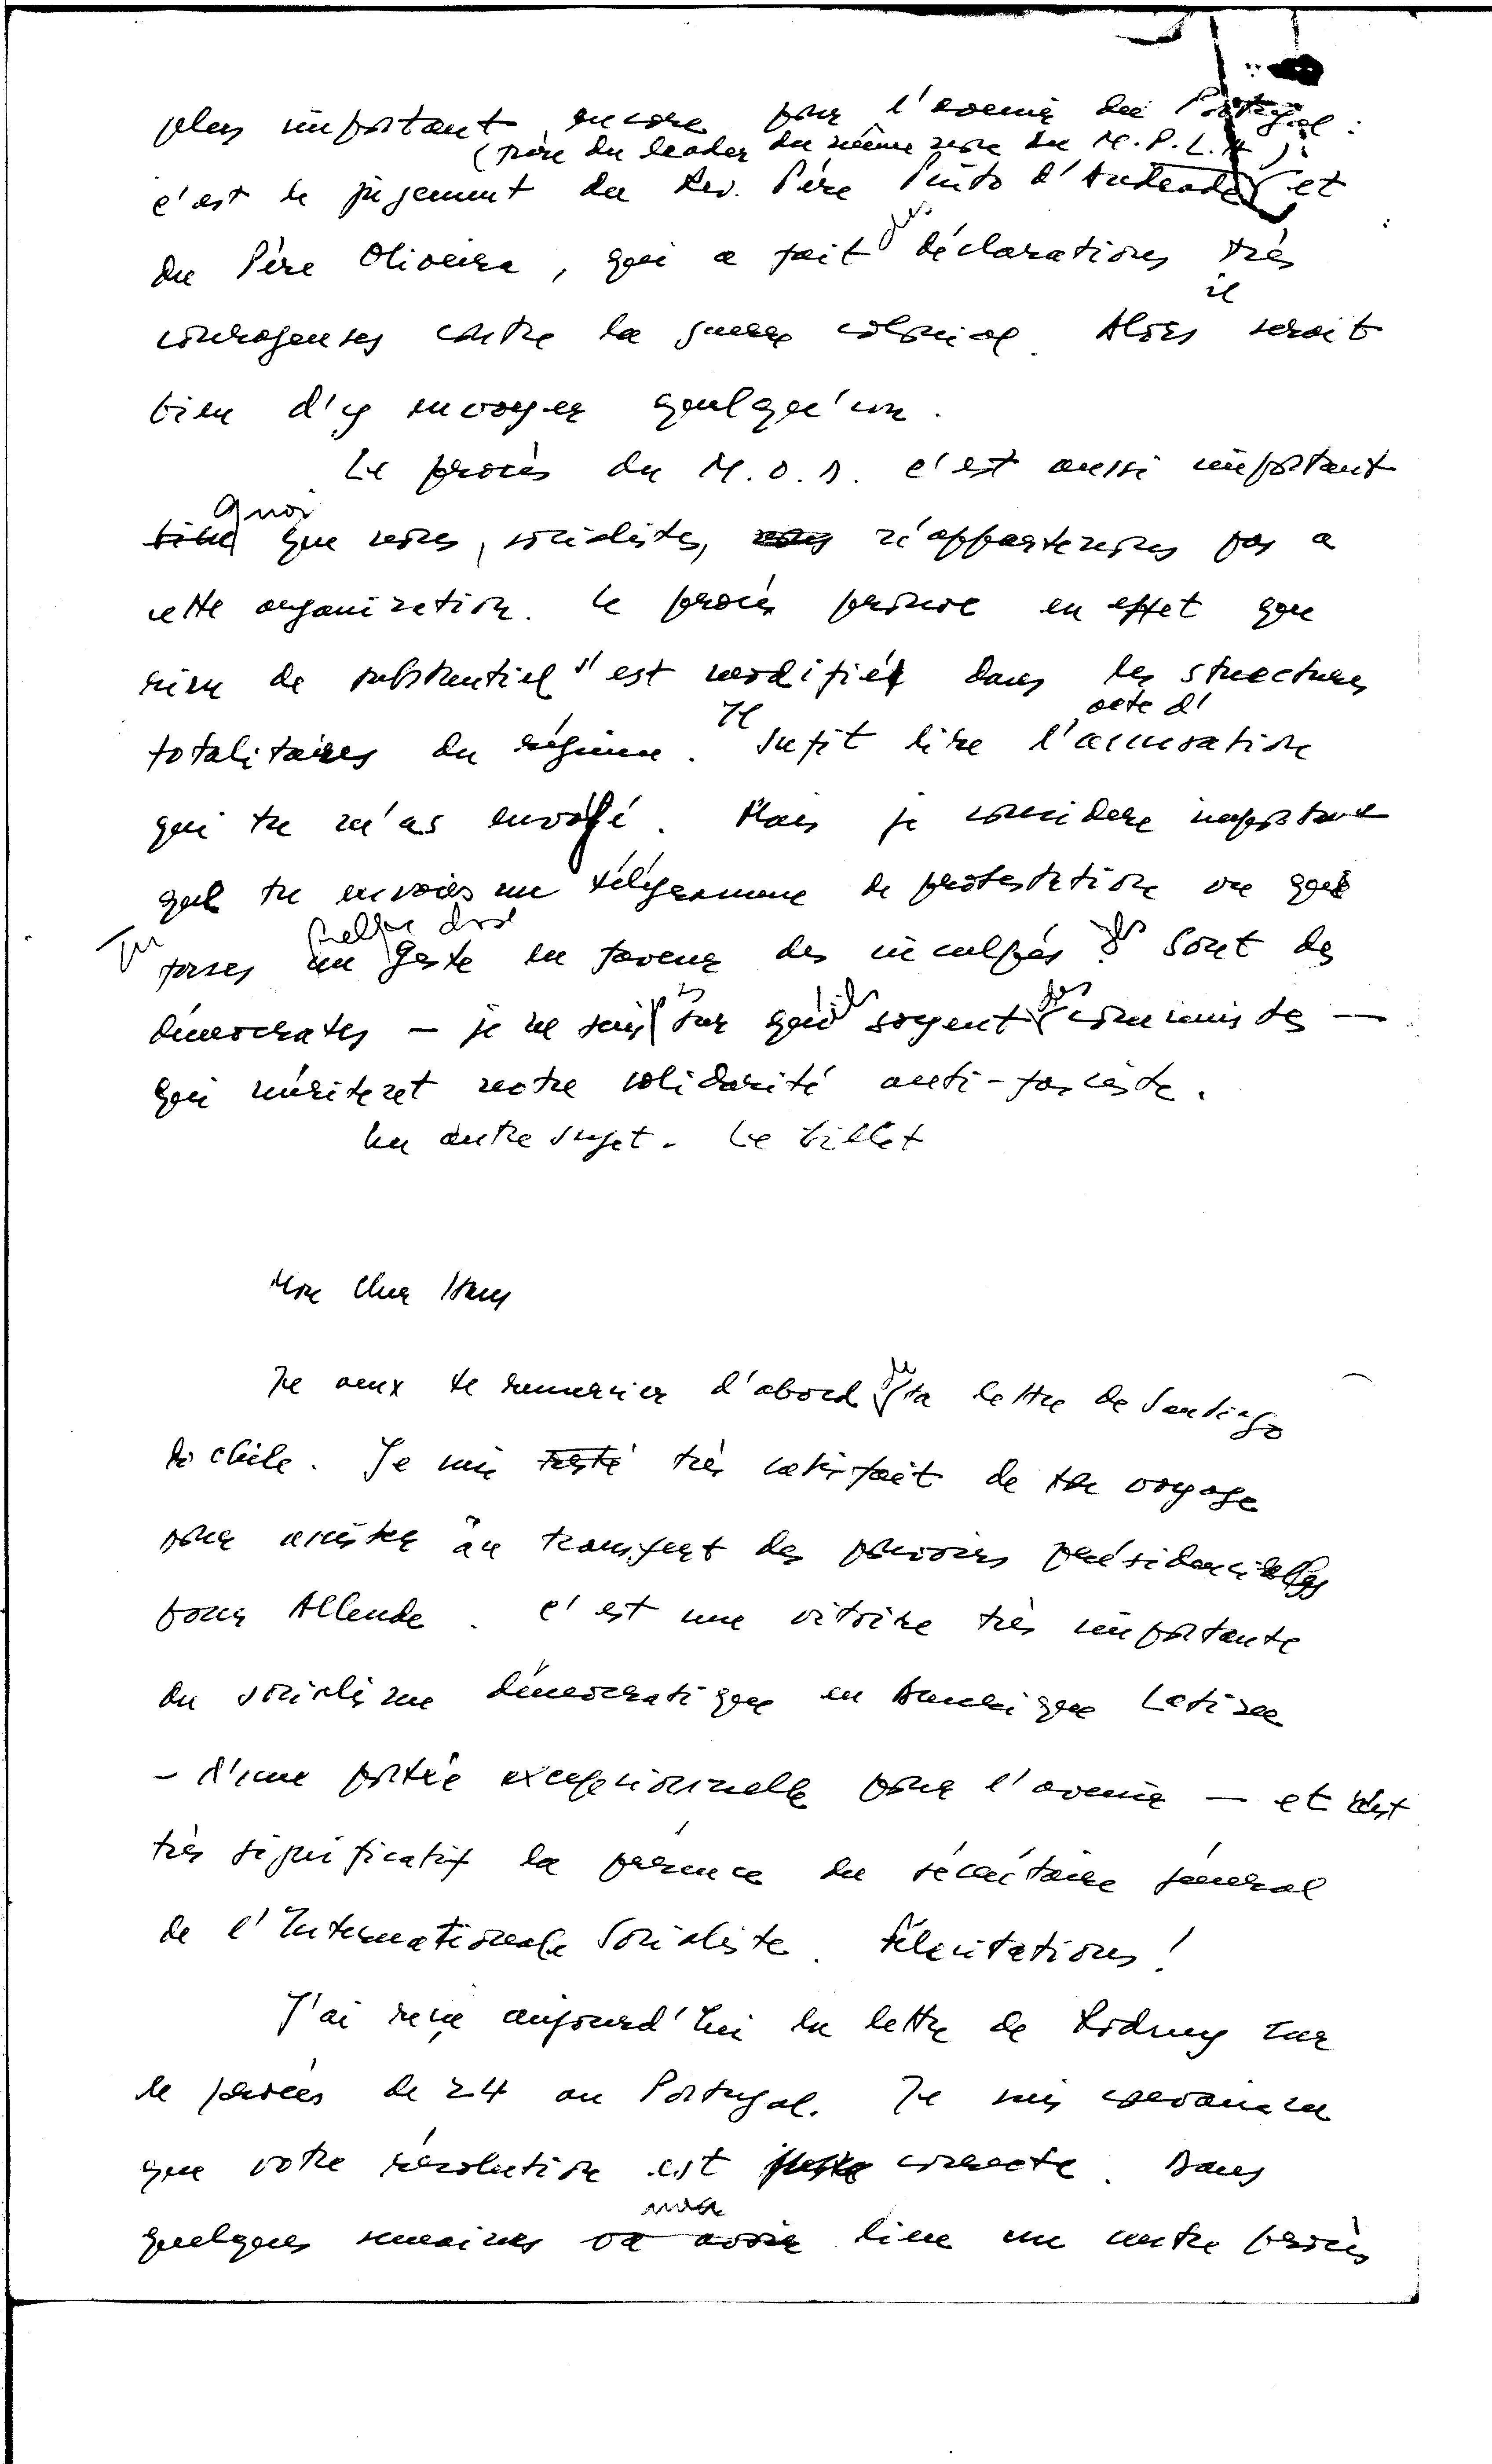 plus important encore pour l'avenir du Portugal :
(frère du leader du même nom du M.P.L.A.)
c'est le jugement du Rev. Père Pinto d'Andrade et
des
du Père Oliveira, qui a fait déclarations très
il
courageuses contre la guerre colonial. Alors serait
bien d'y envoyer quelqu'un.
Le procès du M.D.D. c'est aussi important
quoi
que nous, socialistes, n'appartenions pas a
cette organization. Le procès prouve en effet que
rien de substantiel s'est modifié dans les structures
Il acte d'
totalitaires du régime. Sufit lire l'accusation
qui tu m'as envoyé. Mais je considere important
que tu envoies un télégramme de protestation ou que
Tu quelque chose ils
fasses un geste en faveur des inculpés. Sont des
pas ils des
démocrates — je ne suis sur qui soyent communistes —
qui méritent notre solidarité anti-fasciste.
Un autre sujet. Le billet
Mon cher Hans
de
Je veux te remercier d'abord ta lettre de Santiago
du Chile. Je suis resté très satisfait de ton voyage
pour assister au transfert des pouvoirs présidencielles
pour Allende. C'est une vitoire très importante
du socialisme démocratique en Amerique Latine
— d'une portée excepcionnelle pour l'avenir — et c'est
très significatif la présence du sécrétaire général
de l'Internationale Socialiste. Félicitations !
J'ai reçu aujourd'hui la lettre de Rodney sur
le procès de 24 au Portugal. Je suis
que votre résolution est juste correcte. Dans
quelques semaines va avoir lieu un autre procès